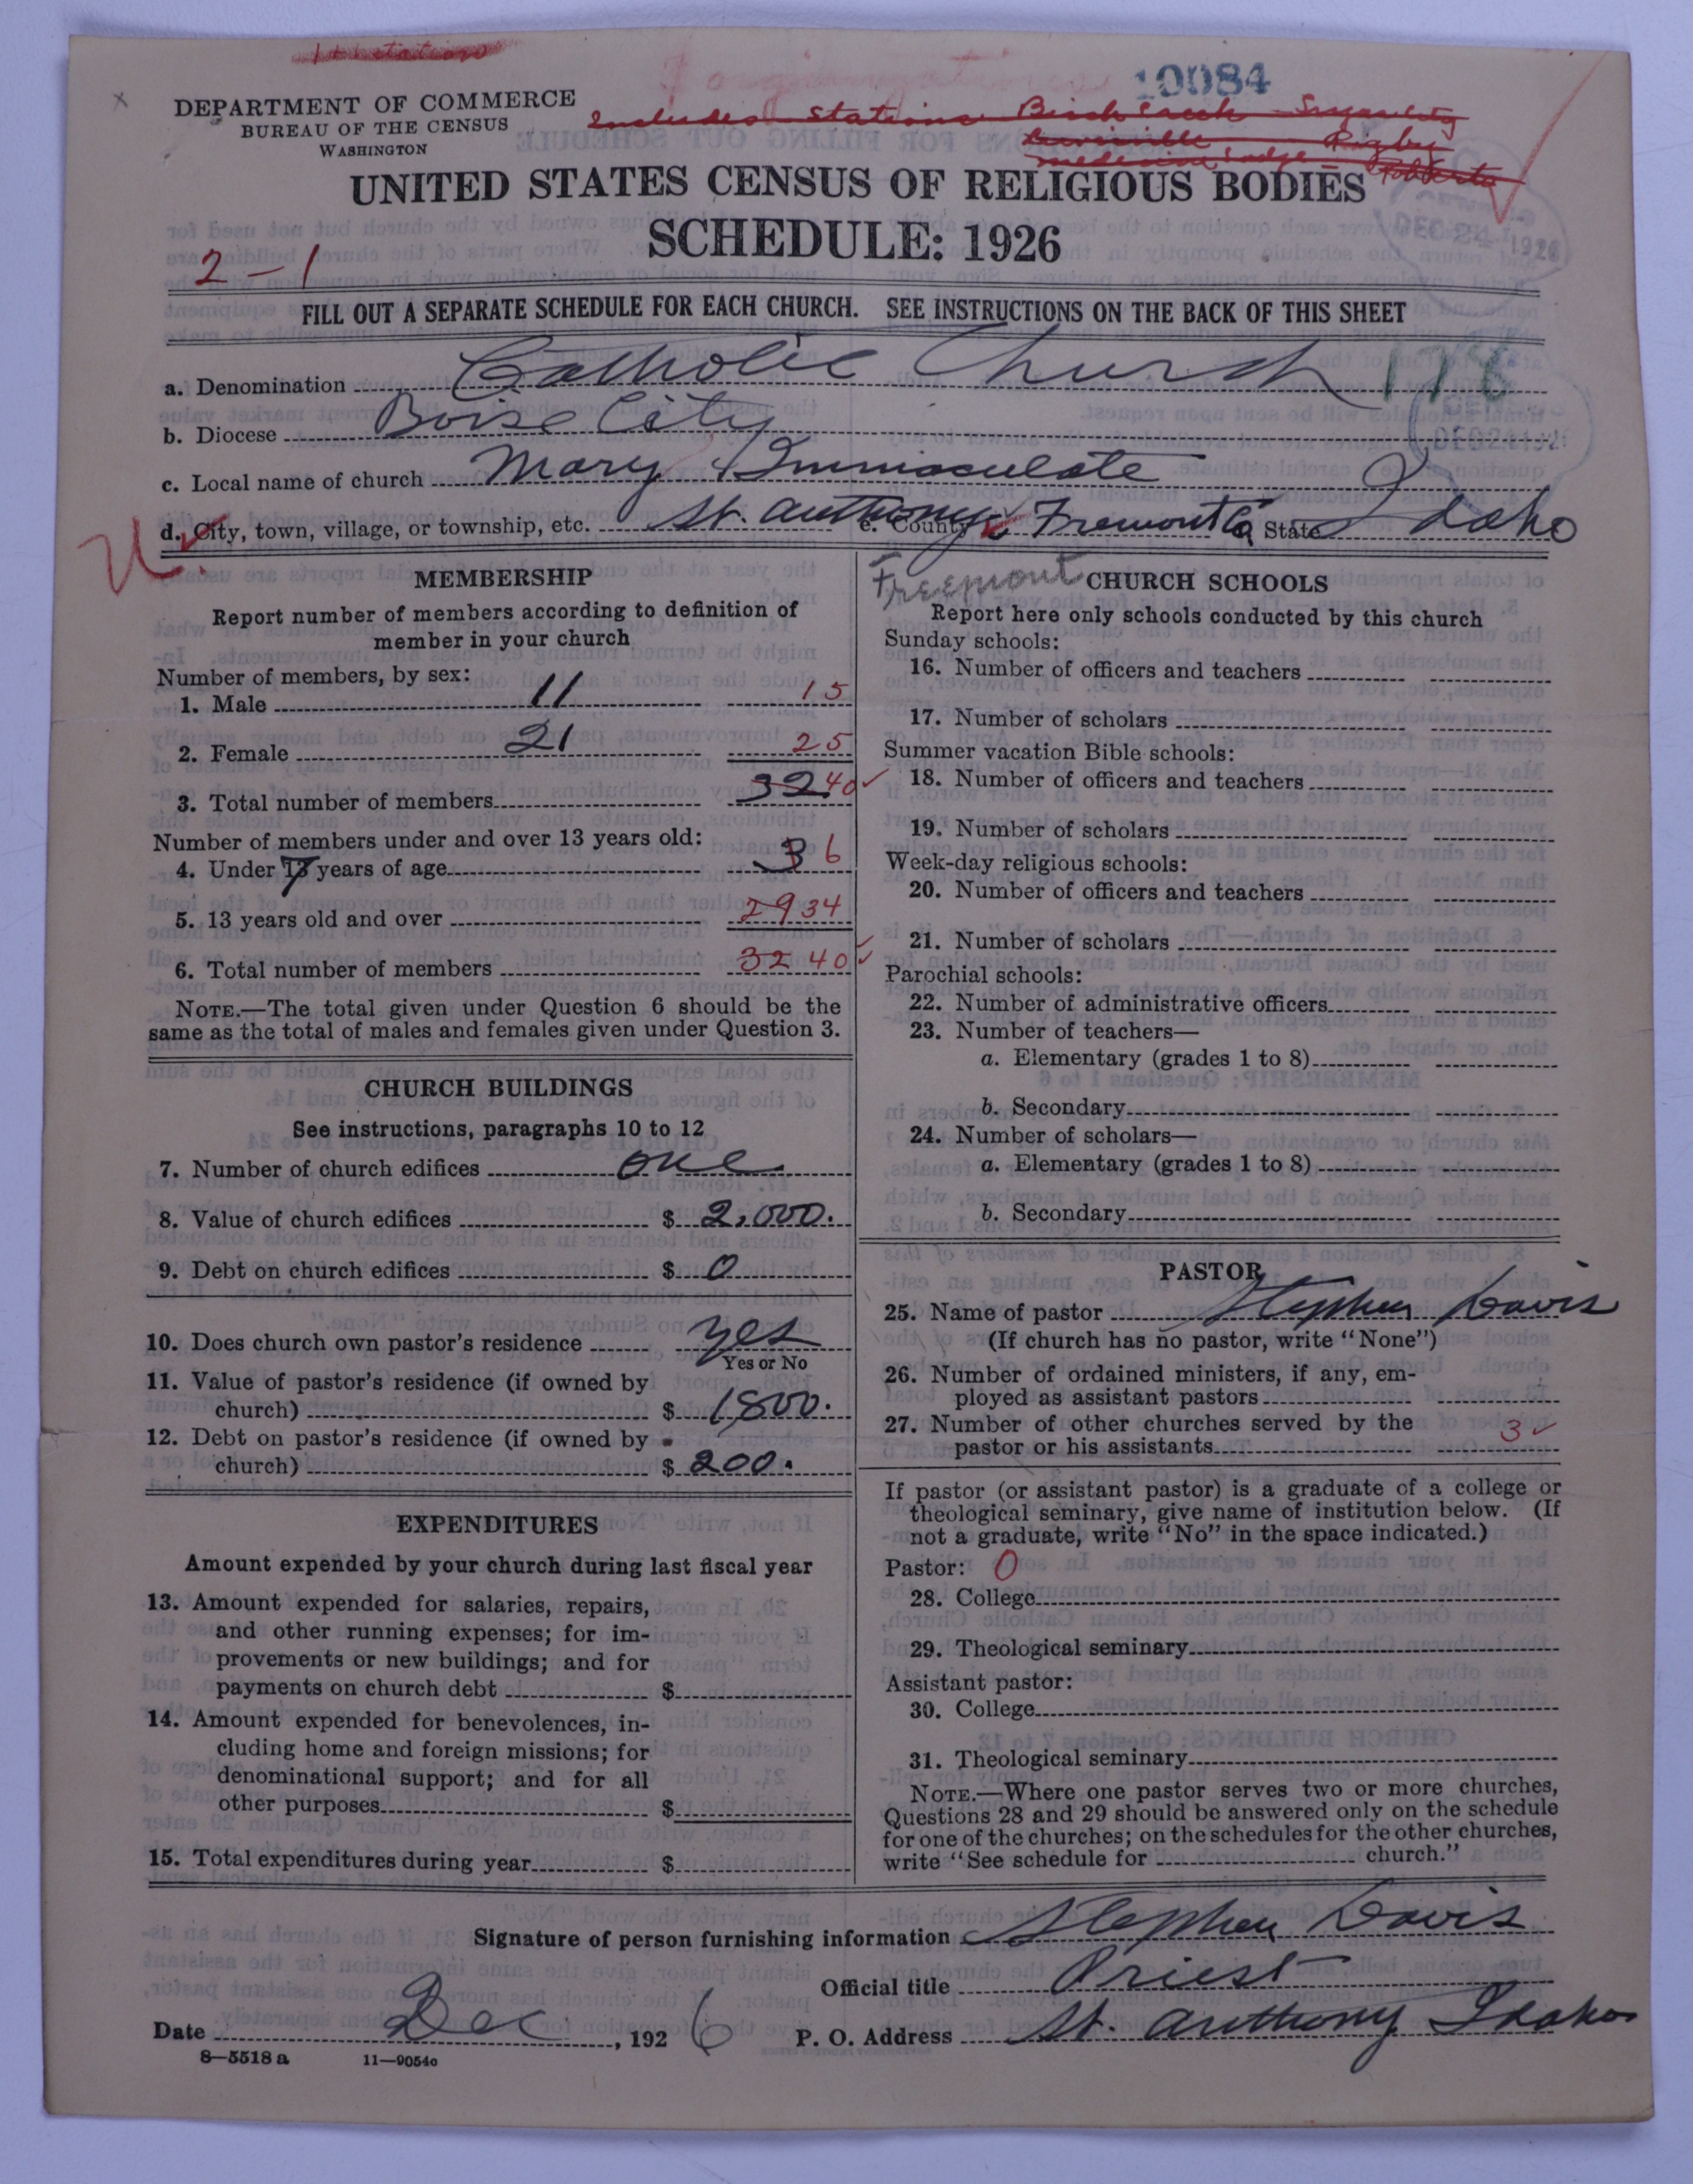 1+ station
10084
DEPARTMENT OF COMMERCE
BUREAU OF THE CENSUS
WASHINGTON
Includes Stations Birch Creek Sugar City
Rigby
Medicine Lodge Roberts
UNITED STATES CENSUS OF RELIGIOUS BODIES
SCHEDULE: 1926
DEC 24 1926
2-1
FILL OUT A SEPARATE SCHEDULE FOR EACH CHURCH. SEE INSTRUCTIONS ON THE BACK OF THIS SHEET
a. Denomination Catholic Church
b. Diocese Boise City
c. Local name of church Mary Immaculate
d. City, town, village, or township, etc. St. Anthony e. County Fremont Co State Idaho
MEMBERSHIP
Report number of members according to definition of
member in your church
Number of members, by sex:
1. Male 11 15
2. Female 21 25
3. Total number of members 32 40
Number of members under and over 13 years old:
4. Under 13 years of age 3 6
5. 13 years old and over 29 34
6. Total number of members 32 40
NOTE.—The total given under Question 6 should be the
same as the total of males and females given under Question 3.
CHURCH BUILDINGS
See instructions, paragraphs 10 to 12
7. Number of church edifices one
8. Value of church edifices $ 2,000.
9. Debt on church edifices $ 0
10. Does church own pastor's residence yes
Yes or No
11. Value of pastor's residence (if owned by
church) $ 1800.
12. Debt on pastor's residence (if owned by
church) $ 200.
EXPENDITURES
Amount expended by your church during last fiscal year
13. Amount expended for salaries, repairs,
and other running expenses; for im-
provements or new buildings; and for
payments on church debt $
14. Amount expended for benevolences, in-
cluding home and foreign missions; for
denominational support; and for all
other purposes $
15. Total expenditures during year $
Freemont
CHURCH SCHOOLS
Report here only schools conducted by this church
Sunday schools:
16. Number of officers and teachers
17. Number of scholars
Summer vacation Bible schools:
18. Number of officers and teachers
19. Number of scholars
Week-day religious schools:
20. Number of officers and teachers
21. Number of scholars
Parochial schools:
22. Number of administrative officers
23. Number of teachers—
a. Elementary (grades 1 to 8)
b. Secondary
24. Number of scholars—
a. Elementary (grades 1 to 8)
b. Secondary
PASTOR
25. Name of pastor Stephen Davis
(If church has no pastor, write "None")
26. Number of ordained ministers, if any, em-
ployed as assistant pastors
27. Number of other churches served by the
pastor or his assistants 3
If pastor (or assistant pastor) is a graduate of a college or
theological seminary, give name of institution below. (If
not a graduate, write "No" in the space indicated.)
Pastor: 0
28. College
29. Theological seminary
Assistant pastor:
30. College
31. Theological seminary
NOTE.—Where one pastor serves two or more churches,
Questions 28 and 29 should be answered only on the schedule
for one of the churches; on the schedules for the other churches,
write "See schedule for church."
Signature of person furnishing information Stephen Davis
Official title Priest
Date Dec, 1926 P. O. Address St. Anthony Idaho
8—5518a 11—9054o